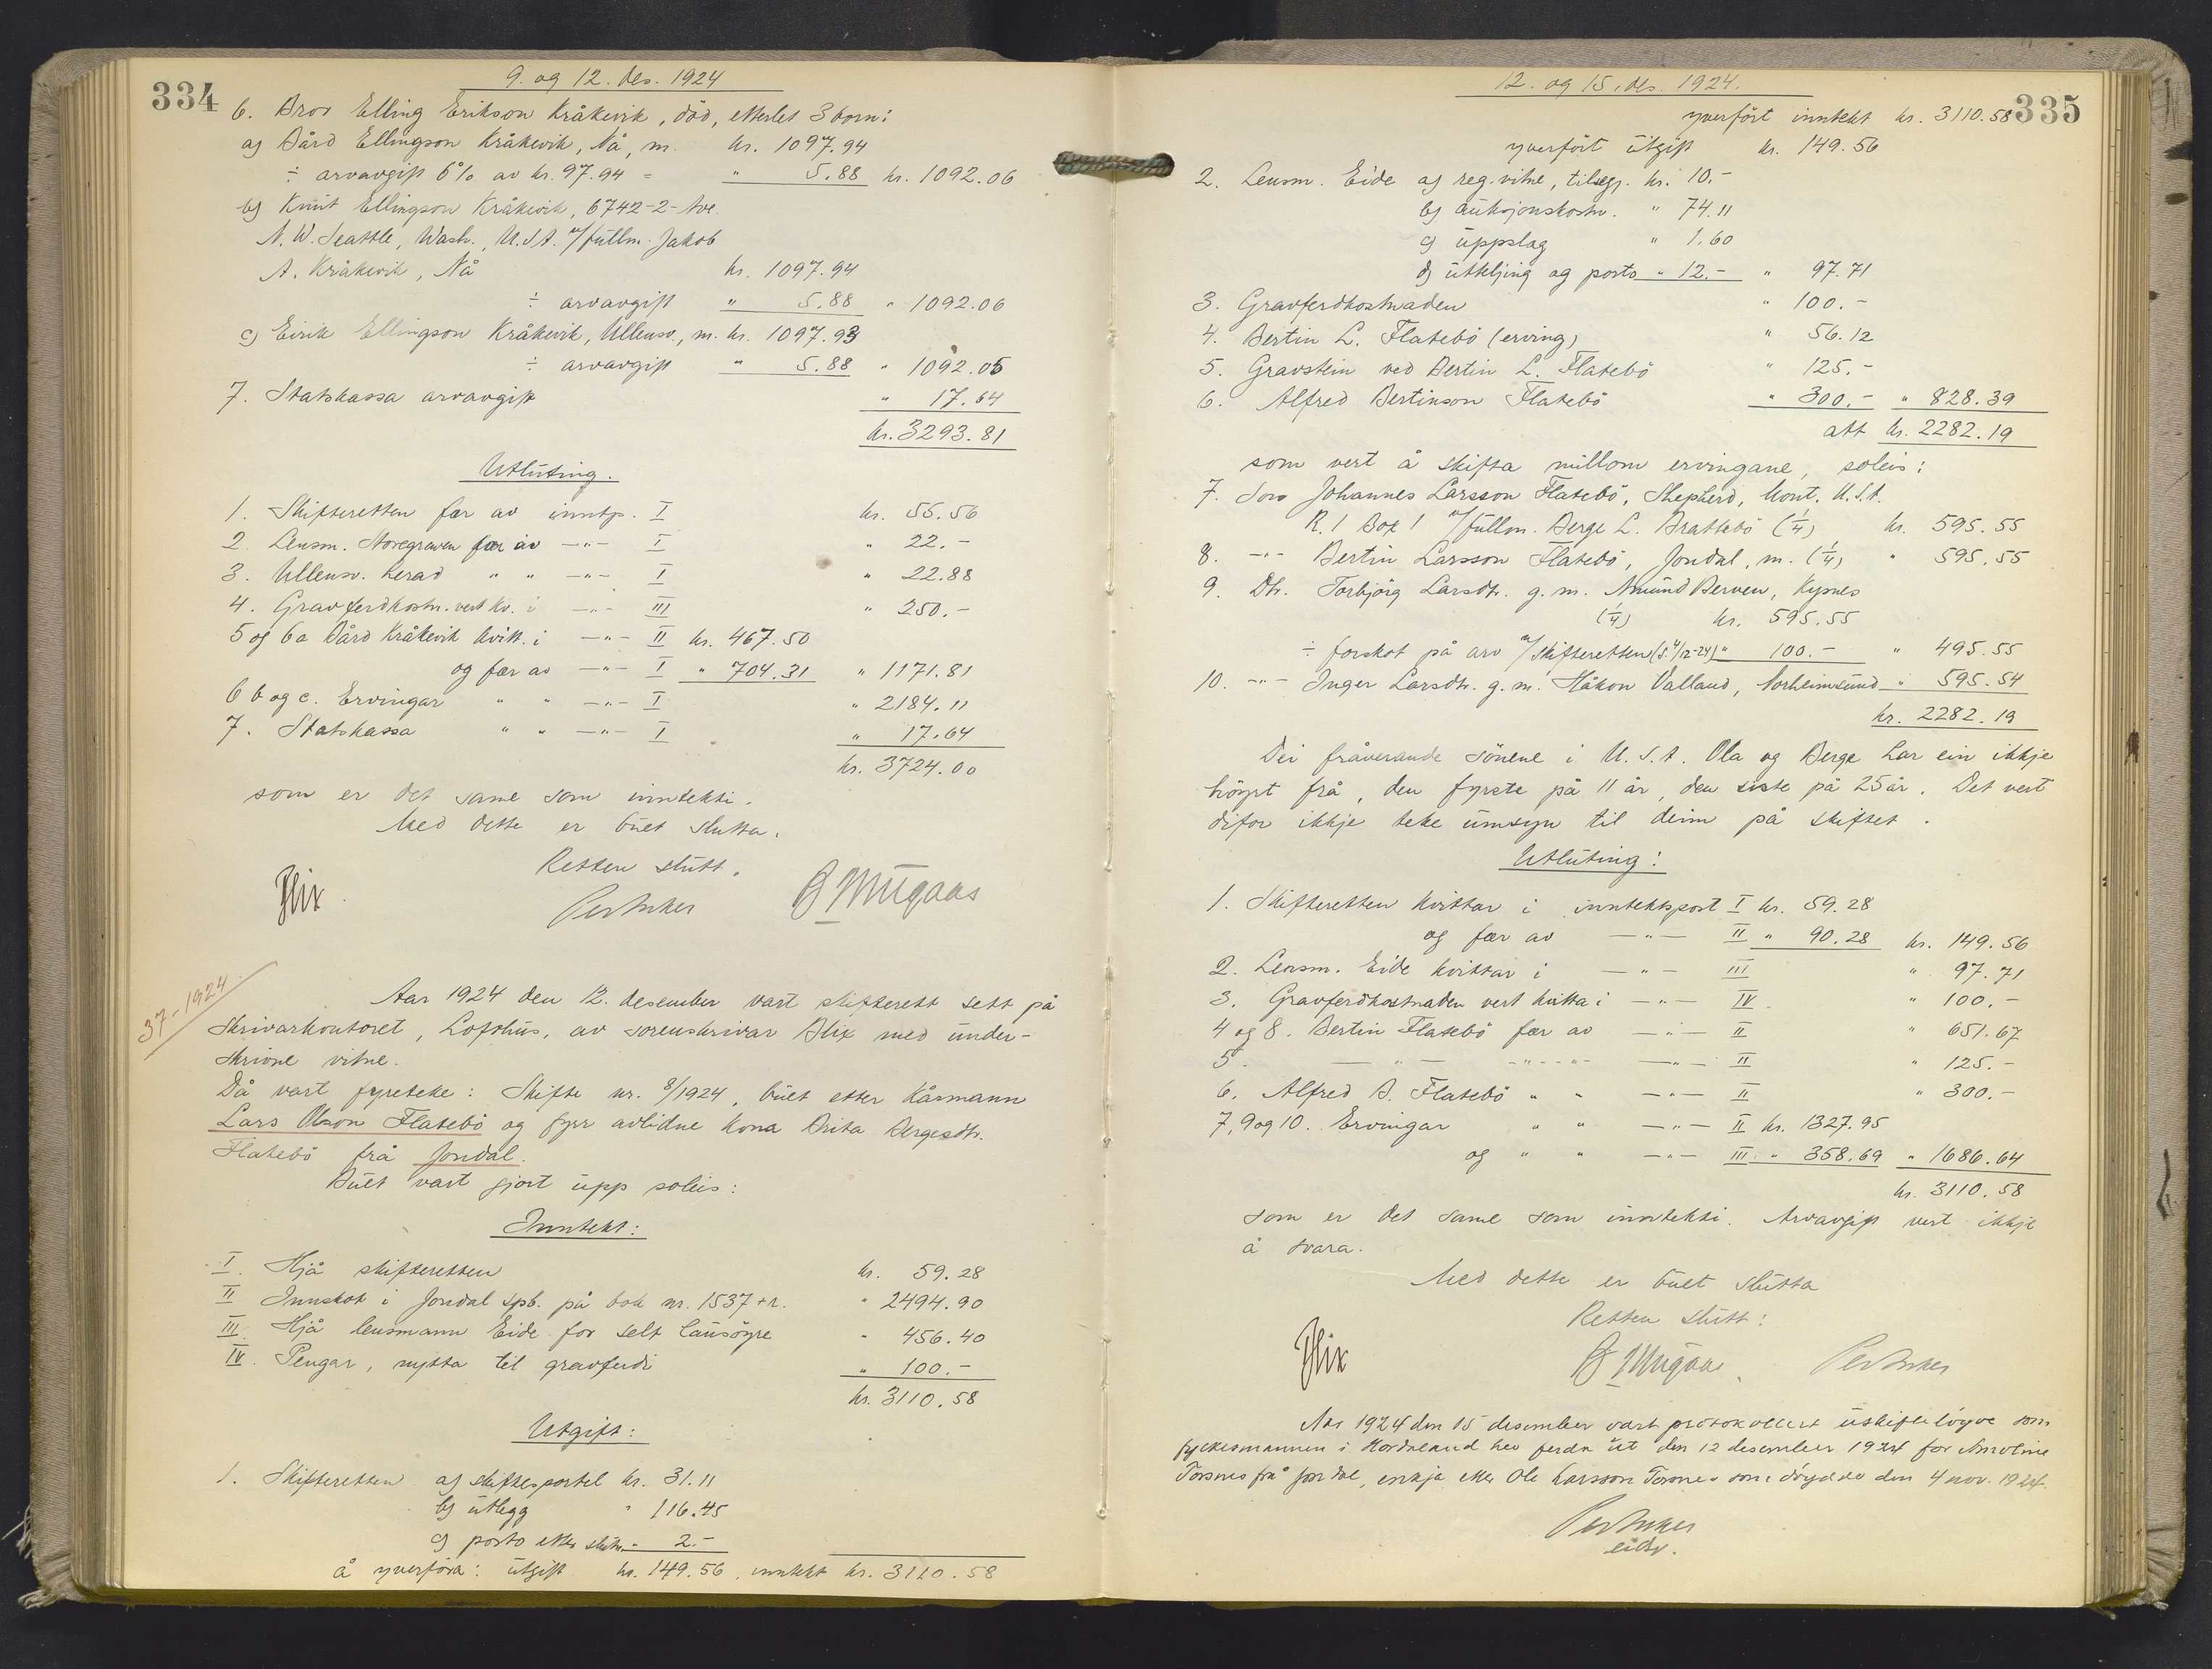 334
9. og 12. des. 1924
6. Bror Elling Erikson Kråkevik, död, etterlet 3 born:
a) Bård Ellingson Kråkevik, Nå, m. kr. 1097.94
÷ arvavgift 6% av kr. 97.94 = " 5.88 kr. 1092.06
b) Knut Ellingson Kråkevik, 6742-2-Ave.
N.W. Seattle, Wash., U.S.A. v/fullm. Jakob
A. Kråkevik, Nå kr. 1097.94
÷ arvavgift " 5.88 " 1092.06
c) Eirik Ellingson Kråkevik, Ullensv., m. kr. 1097.93
÷ arvavgift " 5.88 " 1092.05
7. Statskassa arvavgift " 17.64
kr. 3293.81
Utluting.
1. Skifteretten fær av inntp. I kr. 55.56
2. Lensm. Noregraven fær av —"— I " 22.-
3. Ullensv. herad " " —"— I " 22.88
4. Gravferdkostn. vert kv. i —"— III " 250.-
5 og 6a Bård Kråkevik kvitt. i —"— II kr. 467.50
og fær av —"— I " 704.31 " 1171.81
6 b og c. Ervingar " " —"— I " 2184.11
7. Statskassa " " —"— I " 17.64
kr. 3724.00
som er det same som inntekti.
Med dette er buet slutta.
Retten slutt.
Blix Per Anker B Mugaas
37-1924
Aar 1924 den 12. desember vart skifterett sett på
skrivarkontoret, Lofthus, av sorenskrivar Blix med under-
skrivne vitne.
Då vart fyreteke: Skifte nr. 8/1924, buet etter kårmann
Lars Olson Flatebö og fyrr avlidne kona Brita Bergesdtr.
Flatebö frå Jondal.
Buet vart gjort upp soleis:
Inntekt:
I. Hjå skifteretten kr. 59.28
II Innskot i Jondal spb. på bok nr. 1537 + r. " 2494.90
III. Hjå lensmann Eide for selt lausöyre " 456.40
IV. Pengar, nytta til gravferdi " 100.-
kr. 3110.58
Utgift:
1. Skifteretten a) skiftesportel kr. 31.11
b) utlegg " 116.45
c) porto etter slutn. " 2.-
å yverföra: utgift kr. 149.56, inntekt kr. 3110.58
335
12. og 15. des. 1924.
yverfört inntekt kr. 3110.58
yverfört utgift kr. 149.56
2. Lensm. Eide a) reg. vitne, tilsegj. kr. 10.-
b) auksjonskostn. " 74.11
c) uppslag " 1.60
d) utteljing og porto " 12.- " 97.71
3. Gravferdkostnaden " 100.-
4. Bertin L. Flatebö (erving) " 56.12
5. Gravstein ved Bertin L. Flatebö " 125.-
6. Alfred Bertinson Flatebö " 300.- " 828.39
att kr. 2282.19
som vert å skifta millom ervingane, soleis:
7. Son Johannes Larsson Flatebö, Shepherd, Mont. U.S.A.
R. 1 Box 1 v/fullm. Berge L. Brattebö (1/4) kr. 595.55
8. —"— Bertin Larsson Flatebö, Jondal, m. (1/4) " 595.55
9. Dtr. Torbjörg Larsdtr. g. m. Amund Berven, Kysnes
(1/4) kr. 595.55
÷ forskot på arv v/skifteretten (s. 4/12-24) " 100.- " 495.55
10. —"— Inger Larsdtr. g. m. Håkon Valland, Norheimsund " 595.54
kr. 2282.19
Dei fråverande sönene i U.S.A. Ola og Berge har ein ikkje
höyrt frå, den fyrste på 11 år, den siste på 25 år. Det vert
difor ikkje teke umsyn til deim på skiftet.
Utluting:
1. Skifteretten kvittar i inntektspost I kr. 59.28
og fær av —"— II " 90.28 kr. 149.56
2. Lensm. Eide kvittar i —"— III " 97.71
3. Gravferdkostnaden vert kvitta i —"— IV " 100.-
4 og 8. Bertin Flatebö fær av —"— II " 651.67
5. —"— —"— —"— II " 125.-
6. Alfred B. Flatebö " " —"— II " 300.-
7, 9 og 10. Ervingar " " —"— II kr. 1327.95
og " " —"— III " 358.69 " 1686.64
kr. 3110.58
som er det same som inntekti. Arvavgift vert ikkje
å svara.
Med dette er buet slutta
Retten slutt:
Blix B Mugaas Per Anker
Aar 1924 den 15 desember vart protokollert uskifteløyve som
fylkesmannen i Hordaland hev ferda ut den 12 desember 1924 for
Torsnes frå Jondal, enkja etter Ole Larsson Torsnes som døydde den 4 nov. 1924.
Per Anker
eidsv.